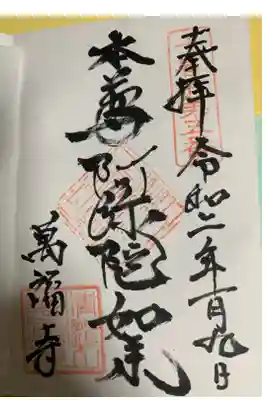 奉拝 令和二年一月九日
本尊阿弥陀如来
萬福寺